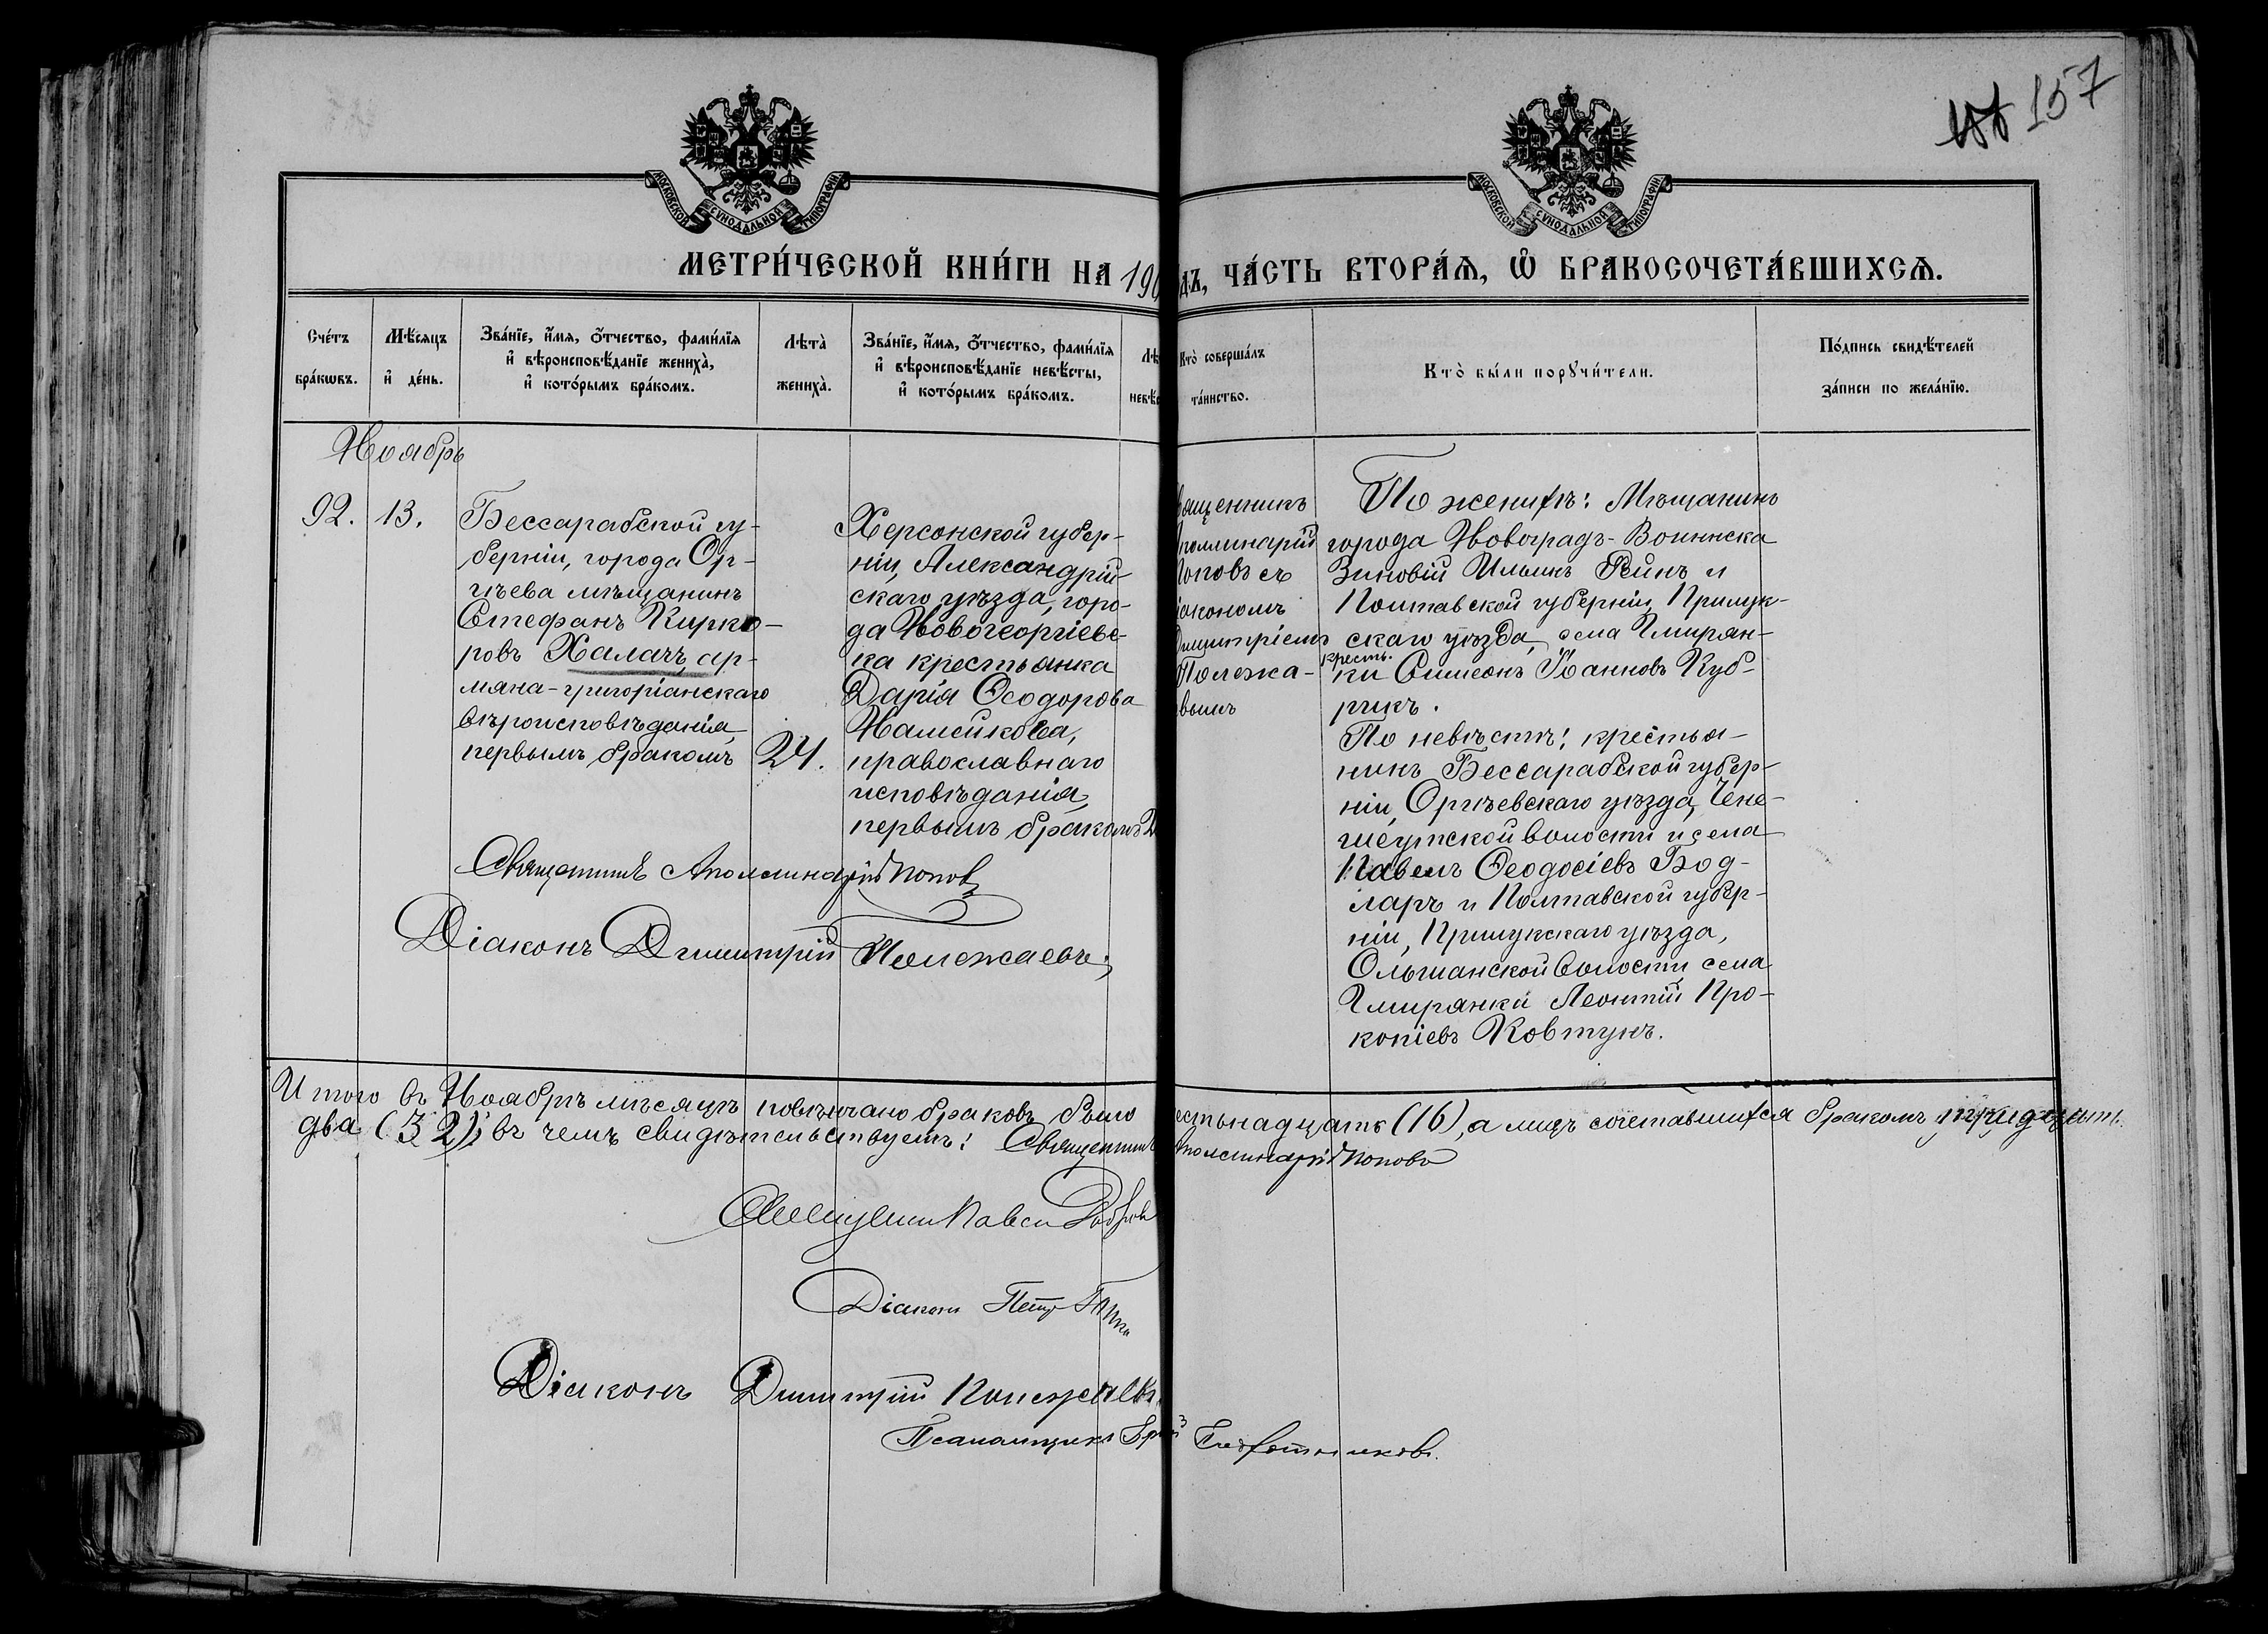 157
МОСКОВСКОЙ СѴНОДАЛЬНОЙ ТИПОГРАФІИ
МОСКОВСКОЙ СѴНОДАЛЬНОЙ ТИПОГРАФІИ
МЕТРИ́ЧЕСКОЙ КНИ́ГИ НА 190
дъ, ЧА́СТЬ ВТОРА́Ѧ, Ѽ БРАКОСОЧЕТА́ВШИХСѦ.
Сче́тъ
бра́кѡвъ.
Мѣ́сяцъ
и҆ де́нь.
Зва́нїе, и҆́мѧ, ѻ҆́тчество, фами́лїѧ
и҆ вѣроисповѣ́данїе жениха̀,
и҆ кото́рымъ бра́комъ.
Лѣта̀
жениха̀.
Зва́нїе, и҆́мѧ, ѻ҆́тчество, фами́лїѧ
и҆ вѣроисповѣ́данїе невѣ́сты,
и҆ кото́рымъ бра́комъ.
Лѣ
невѣс
Кто̀ соверша́лъ
та́инство.
Кто̀ бы́ли порꙋчи́тели.
По́дпись свидѣ́телей
за́писи по жела́нїю.
Ноябрь
92.
13.
Бессарабской гу-
берніи, города Ор-
гѣева мѣщанинъ
Стефанъ Кирко-
ровъ Халачъ, ар-
мяно-григоріанскаго
вѣроисповѣданія,
первымъ бракомъ
24.
Херсонской губер-
ніи, Александрій-
скаго уѣзда, горо-
да Новогеоргіевс-
ка крестьянка
Дарія Ѳеодорова
Намейкова,
православнаго
исповѣданія,
первымъ бракомъ 2
ященникъ
поллинарій
Поповъ съ
іакономъ
Димитріемъ
Полежа-
вымъ
По женихѣ: Мѣщанинъ
города Новоградъ-Волынска
Зиновій Ильинъ Рейнъ и
Полтавской губерніи, Прилук-
скаго уѣзда, села Гмирян-
крест.
ки Симеонъ Іоанновъ Куб-
рикъ.
По невѣстѣ: крестья-
нинъ Бессарабской губер-
ніи, Оргѣевскаго уѣзда, Чине-
шеутской волости и села
Павелъ Ѳеодосіевъ Бод-
ларъ и Полтавской губер-
ніи, Прилукскаго уѣзда,
Ольшанской волости села
Гмирянки Леонтій Про-
копіевъ Ковтунъ.
Священникъ Аполлинарій Попов
Діаконъ Димитрій Полежаевъ;
Итого въ Ноябрѣ мѣсяцѣ повѣнчано браковъ было
естьнадцать (16), а лицъ сочетавшихся бракомъ тридцать
два (32); въ чемъ свидѣтельствуемъ: Священникъ
Аполлинарій Поповъ
Священникъ Павелъ
Діаконъ Петръ
Діаконъ Димитрій Полежаевъ
Псаломщикъ